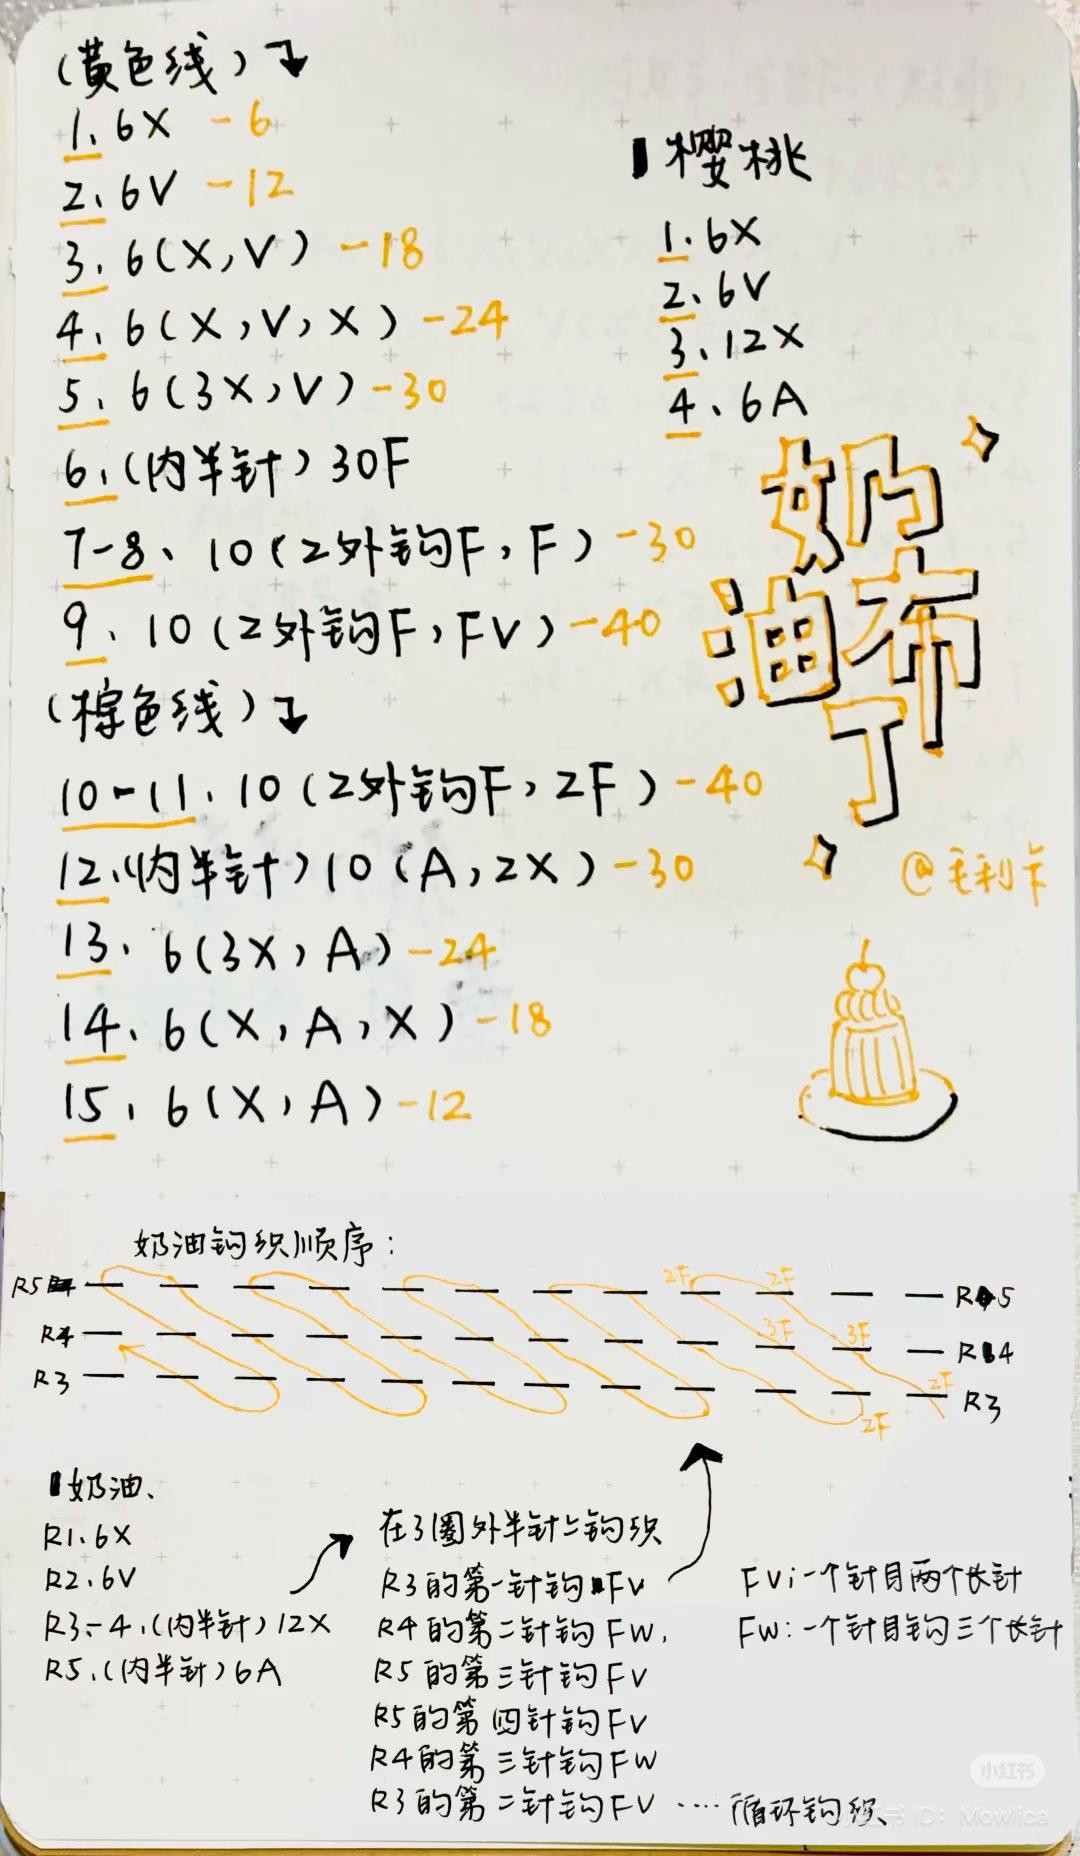 (黄色线)↴
1、6X -6
2、6V -12
3、6(X,V) -18
4、6(X,V,X) -24
5、6(3X,V) -30
6、(内半针)30F
7-8、10(2外钩F,F) -30
9、10(2外钩F,FV) -40
(棕色线)↴
10-11、10(2外钩F,2F) -40
12、(内半针)10(A,2X) -30
13、6(3X,A) -24
14、6(X,A,X) -18
15、6(X,A) -12
樱桃
1.6X
2.6V
3.12X
4、6A
奶
油布
丁
@毛利卡
奶油钩织顺序:
R5 2F 2F R5
R4 3F 3F R4
R3 2F 2F R3
奶油、
R1、6X
R2、6V
R3-4、(内半针)12X
R5、(内半针)6A
在3圈外半针上钩织
R3的第一针钩FV
R4的第二针钩FW、
R5的第三针钩FV
R5的第四针钩FV
R4的第三针钩FW
R3的第二针钩FV ····循环钩织、
FV:一个针目两个长针
FW:一个针目钩三个长针
小红书
小红书 ID: Mowlica